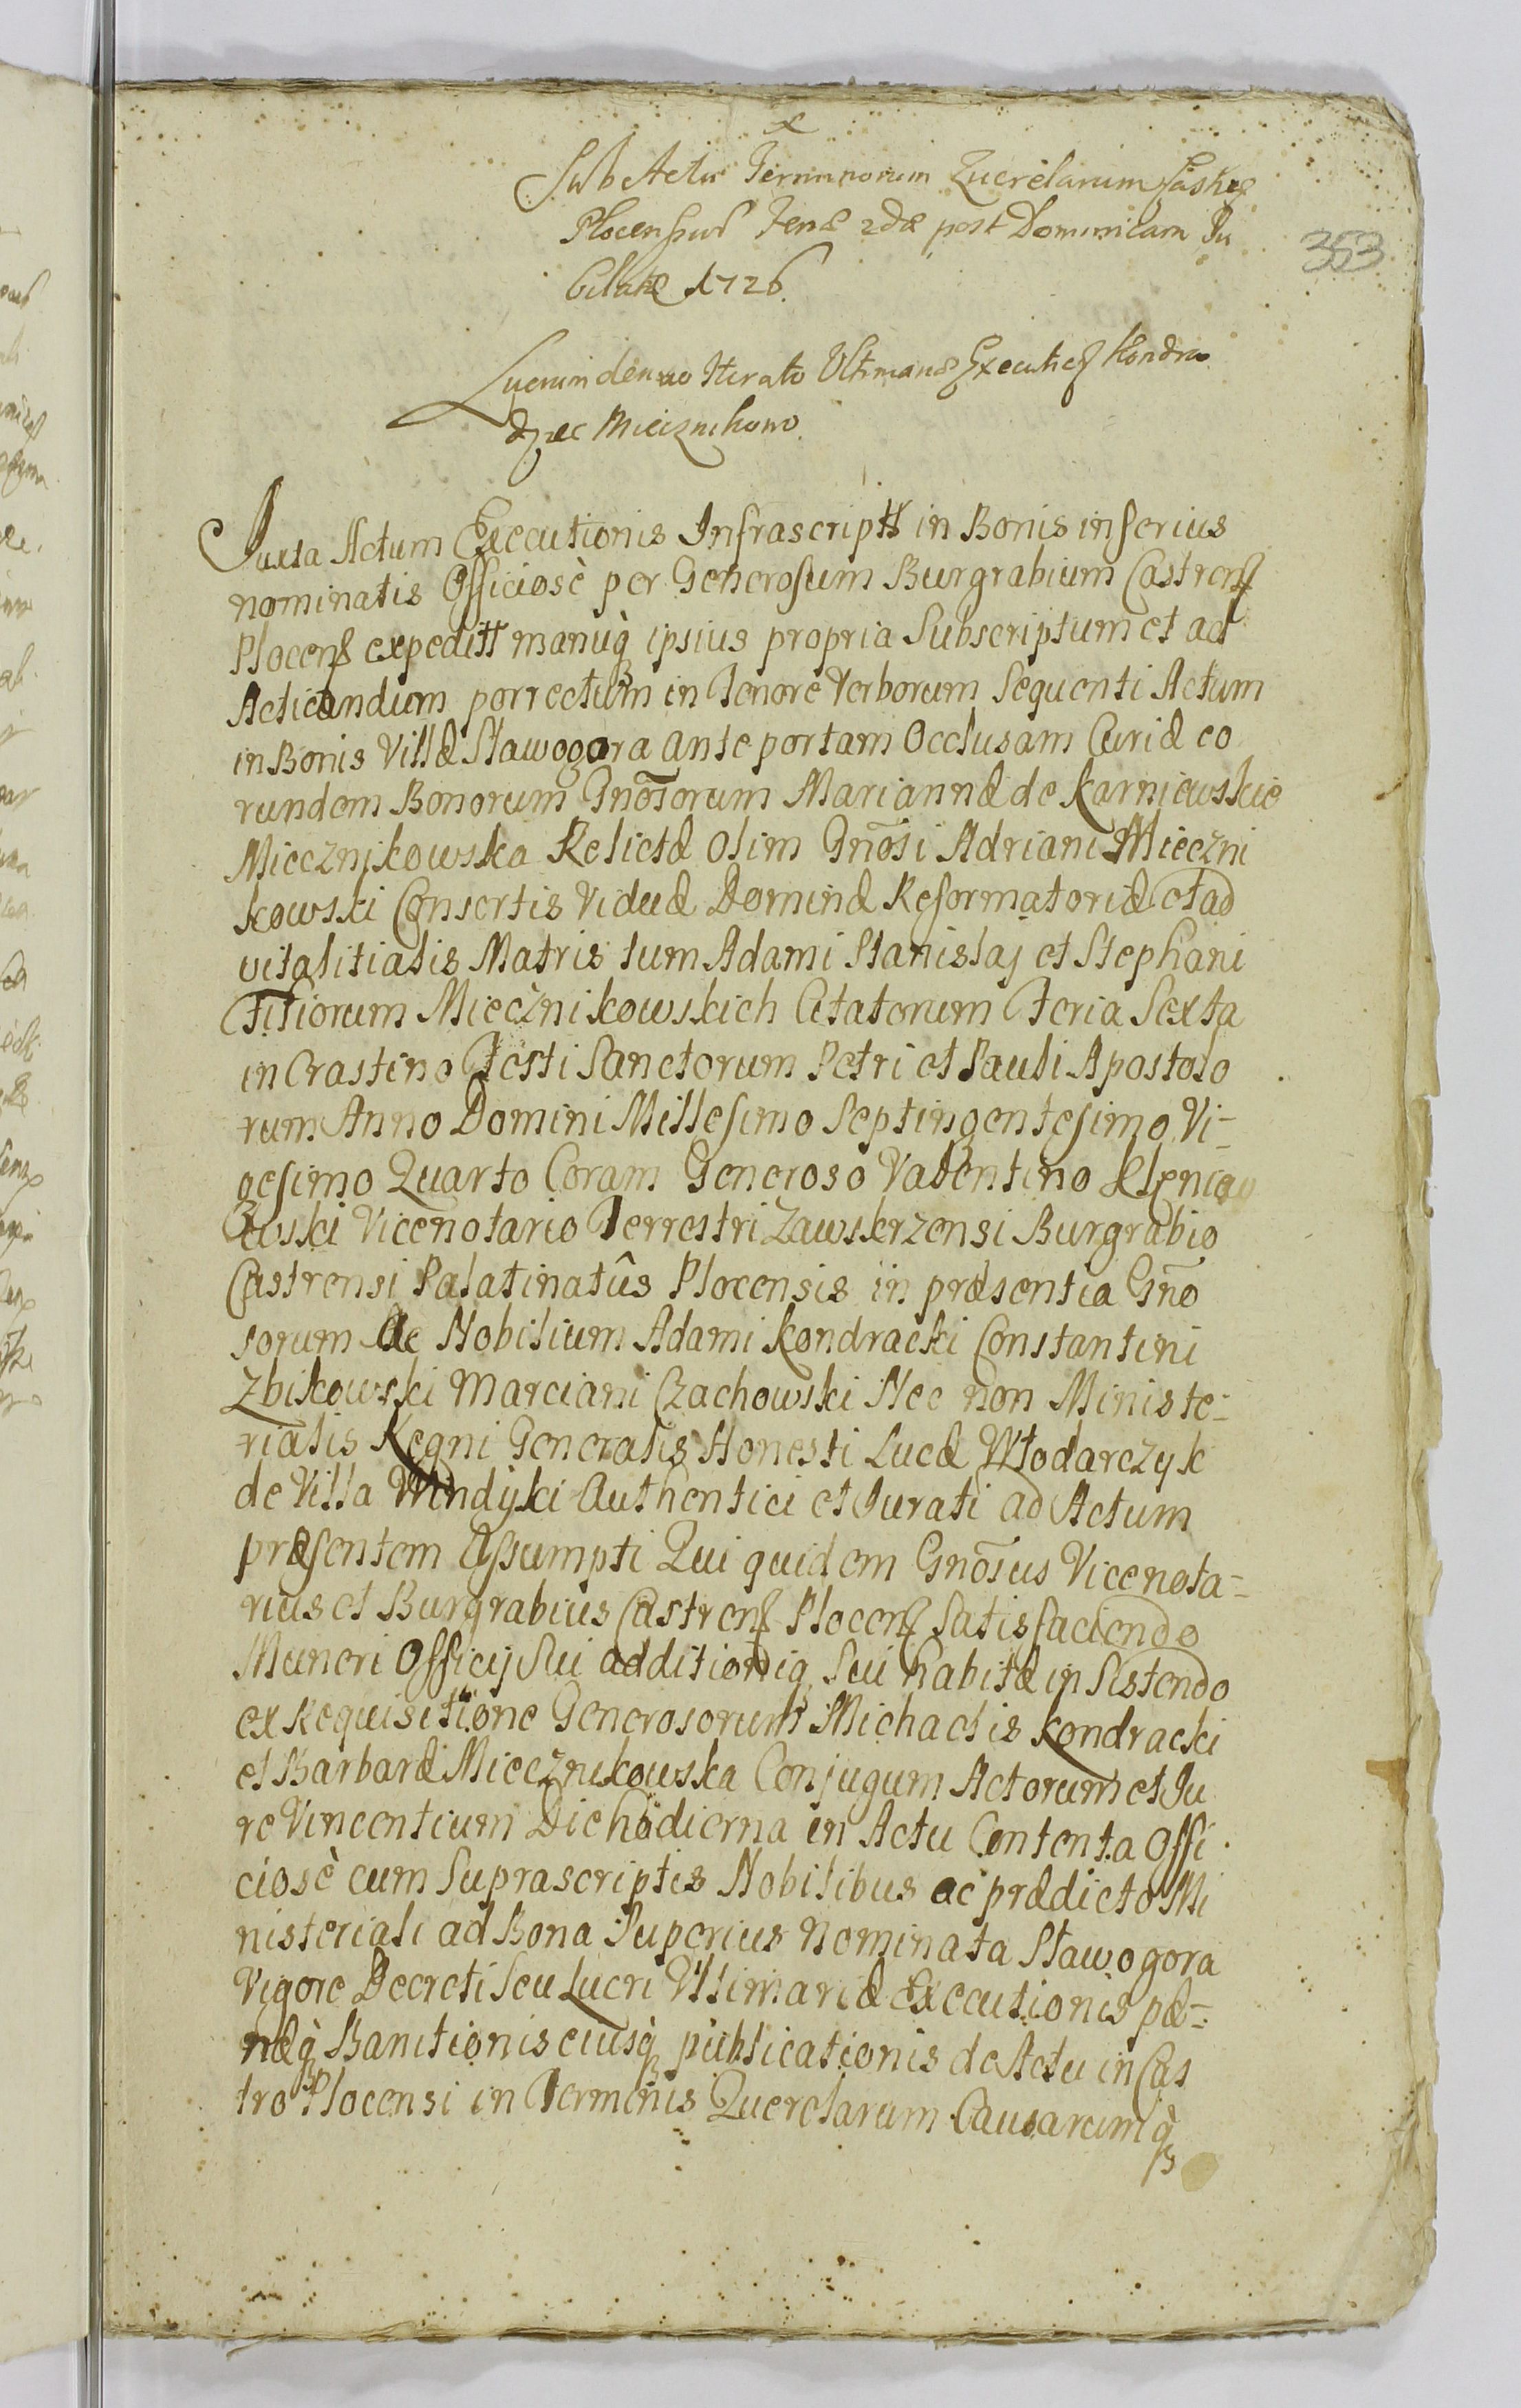 Sub Actu Terminorum Querelarum Castr
Plocensium Feria 2da post Dominicam Ju
bilate 1726
353
Lucrum denuo Iterato Ultimariæ Executions Kondra
dzec Miecznikow
Juxta Actum Executionis Infrascriptt in Bonis inferius
nominatis Officiosè per Generosum Burgrabium Castrens
Plocens expeditt manuq ipsius propria Subscriptum et ad
Acticandum porrectum in Tenore Verborum Sequenti Actum
in Bonis Villæ Sławogora ante portam Occlusam Curiæ eo
rundem Bonorum Gnosorum Mariannæ de Karniewskie
Miecznikowska Relictæ olim Gnosi Adriani Mieczni
kowski Consortis Viduæ Dominæ Reformatoriæ et ad
vitalitialis Matris tum Adami Stanislaj et Stephani
Filiorum Miecznikowskich Citatorum Feria Sexta
in Crastino Festi Sanctorum Petri et Pauli Apostolo
rum Anno Domini Millesimo Septingentesimo Vi-
gesimo Quarto Coram Generoso Valentino
ewski Vicenotario Terrestri Zawskrzensi Burgrabio
Castrensi Palatinatûs Plocensis in præsentia Gno
sorum Ac Nobilium Adami Kondracki Constantini
Zbikowski Marciani Czachowski Nec non Ministe-
rialis Regni Generalis Honesti Lucæ Włodarczyk
de Villa Windyki Authentici et Jurati ad Actum
præsentem Assumpti Qui quidem Gnosus Vicenota-
rius et Burgrabius Castrens Plocens Satisfaciendo
Muneri Officij Sui additioniq Sui habitæ insistendo
ex Requisitione Generosorum Michaelis Kondracki
et Barbaræ Miecznikowska Conjugum Actorum et Ju
re Vincentium Die hodierna in Actu Contenta Offi
ciosè cum Suprascriptis Nobilibus ac prædicto Mi
nisteriali ad Bona Superius Nominata Sławogora
Vigore Decreti Seu Lucri Ultimariæ Executionis pæ-
næq Banitionis eiusq publicationis de Actu in Cas
tro Plocensi in Terminis Querelarum Causarumq